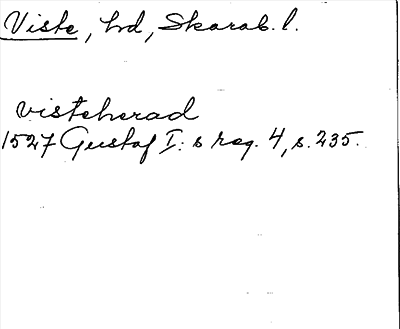 Viste, hd, Skarab. l.
visteherad
1527 Gustaf I:s reg. 4, s. 235.